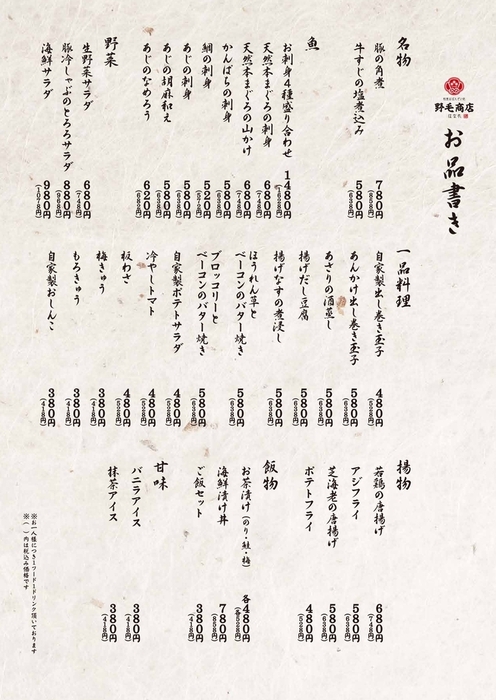 野毛商店
はなれ
お品書き
名物
豚の角煮 780円 (858円)
牛すじの塩煮込み 580円 (638円)
魚
お刺身4種盛り合わせ 1480円 (1628円)
天然本まぐろの刺身 680円 (748円)
天然本まぐろの山かけ 680円 (748円)
かんぱちの刺身 680円 (748円)
鯛の刺身 520円 (572円)
あじの刺身 580円 (638円)
あじの胡麻和え 580円 (638円)
あじのなめろう 620円 (682円)
野菜
生野菜サラダ 680円 (748円)
豚冷しゃぶのとろろサラダ 880円 (968円)
海鮮サラダ 980円 (1078円)
一品料理
自家製出し巻き玉子 480円 (528円)
あんかけ出し巻き玉子 580円 (638円)
あさりの酒蒸し 580円 (638円)
揚げだし豆腐 580円 (638円)
揚げなすの煮浸し 580円 (638円)
ほうれん草と
ベーコンのバター焼き 580円 (638円)
ブロッコリーと
ベーコンのバター焼き 580円 (638円)
自家製ポテトサラダ 480円 (528円)
冷やしトマト 480円 (528円)
板わさ 480円 (528円)
梅きゅう 380円 (418円)
もろきゅう 380円 (418円)
自家製おしんこ 380円 (418円)
揚物
若鶏の唐揚げ 680円 (748円)
アジフライ 580円 (638円)
芝海老の唐揚げ 580円 (638円)
ポテトフライ 480円 (528円)
飯物
お茶漬け(のり・鮭・梅) 各480円 (各528円)
海鮮漬け丼 780円 (858円)
ご飯セット 380円 (418円)
甘味
バニラアイス 380円 (418円)
抹茶アイス 380円 (418円)
※お一人様につき1フード1ドリンク頂いております
※( )内は税込み価格です